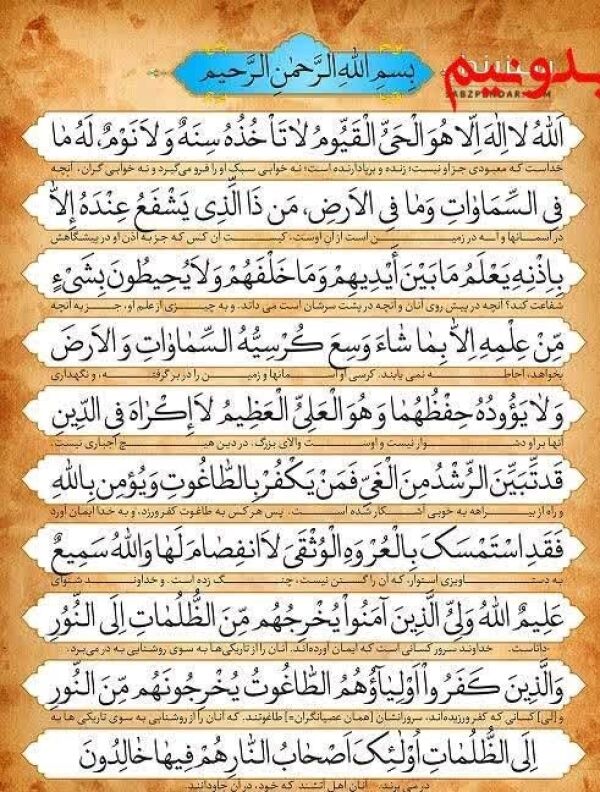 بدونیم
سبزپندار
SABZPENDAR.COM
بِسْمِ اللهِ الرَّحْمٰنِ الرَّحیمِ
اَللهُ لا اِلٰهَ اِلّا هُوَ الْحَیُّ الْقَیُّومُ لا تَأخُذُهُ سِنَةٌ وَ لا نَوْمٌ، لَهُ مٰا
خداست که معبودی جز او نیست؛ زنده و برپادارنده است؛ نه خوابی سبک او را فرو می‌گیرد و نه خوابی گران. آنچه
فِی السَّمٰاوٰاتِ وَ مٰا فِی الاَرضِ، مَن ذَا الَّذِی یَشْفَعُ عِنْدَهُ اِلّا
در آسمانها و آنچه در زمین است از آن اوست. کیست آن کس که جز به اذن او در پیشگاهش
بِاِذْنِهِ یَعْلَمُ مٰا بَیْنَ أَیْدِیهِمْ وَ مٰا خَلْفَهُمْ وَ لا یُحِیطُونَ بِشَیْءٍ
شفاعت کند؟ آنچه در پیش روی آنان و آنچه در پشت سرشان است می داند. و به چیزی از علم او، جز به آنچه
مِّنْ عِلْمِهِ اِلاّ بِمٰا شٰاءَ وَسِعَ کُرْسِیُّهُ السَّمٰاوٰاتِ وَ الاَرضَ
بخواهد، احاطه نمی یابند. کرسی او آسمانها و زمین را در بر گرفته، و نگهداری
وَ لا یَؤُودُهُ حِفْظُهُمٰا وَ هُوَ الْعَلِیُّ الْعَظِیمُ لاَ إِکْرٰاهَ فِی الدِّینِ
آنها بر او دشوار نیست و اوست والای بزرگ. در دین هیچ اجباری نیست.
قَد تَّبَیَّنَ الرُّشْدُ مِنَ الْغَیِّ فَمَنْ یَکْفُرْ بِالطّٰاغُوتِ وَ یُؤْمِن بِاللهِ
و راه از بیراهه به خوبی آشکار شده است. پس هر کس به طاغوت کفر ورزد، و به خدا ایمان آورد
فَقَدِ اسْتَمْسَکَ بِالْعُرْوَهِ الْوُثْقَیَ لاَ انفِصٰامَ لَهٰا وَاللهُ سَمِیعٌ
به دستاویزی استوار، که آن را گسستن نیست، چنگ زده است. و خداوند شنوای
عَلِیمٌ اللهُ وَلِیُّ الَّذِینَ آمَنُواْ یُخْرِجُهُم مِّنَ الظُّلُمٰاتِ اِلَی النُّوُرِ
داناست. خداوند سرور کسانی است که ایمان آورده‌اند. آنان را از تاریکی‌ها به سوی روشنایی به در می‌برد.
وَالَّذِینَ کَفَرُواْ اَوْلِیٰآؤُهُمُ الطّٰاغُوتُ یُخْرِجُونَهُم مِّنَ النُّوُرِ
و [لی] کسانی که کفر ورزیده‌اند، سرورانشان [همان عصیانگران=] طاغوتند، که آنان را از روشنایی به سوی تاریکی ها به
اِلَی الظُّلُمٰاتِ اُوْلٰئِکَ اَصْحٰابُ النّٰارِ هُمْ فِیهٰا خٰالِدُونَ
در می برند. آنان اهل آتشند که خود، در آن جاودانند.